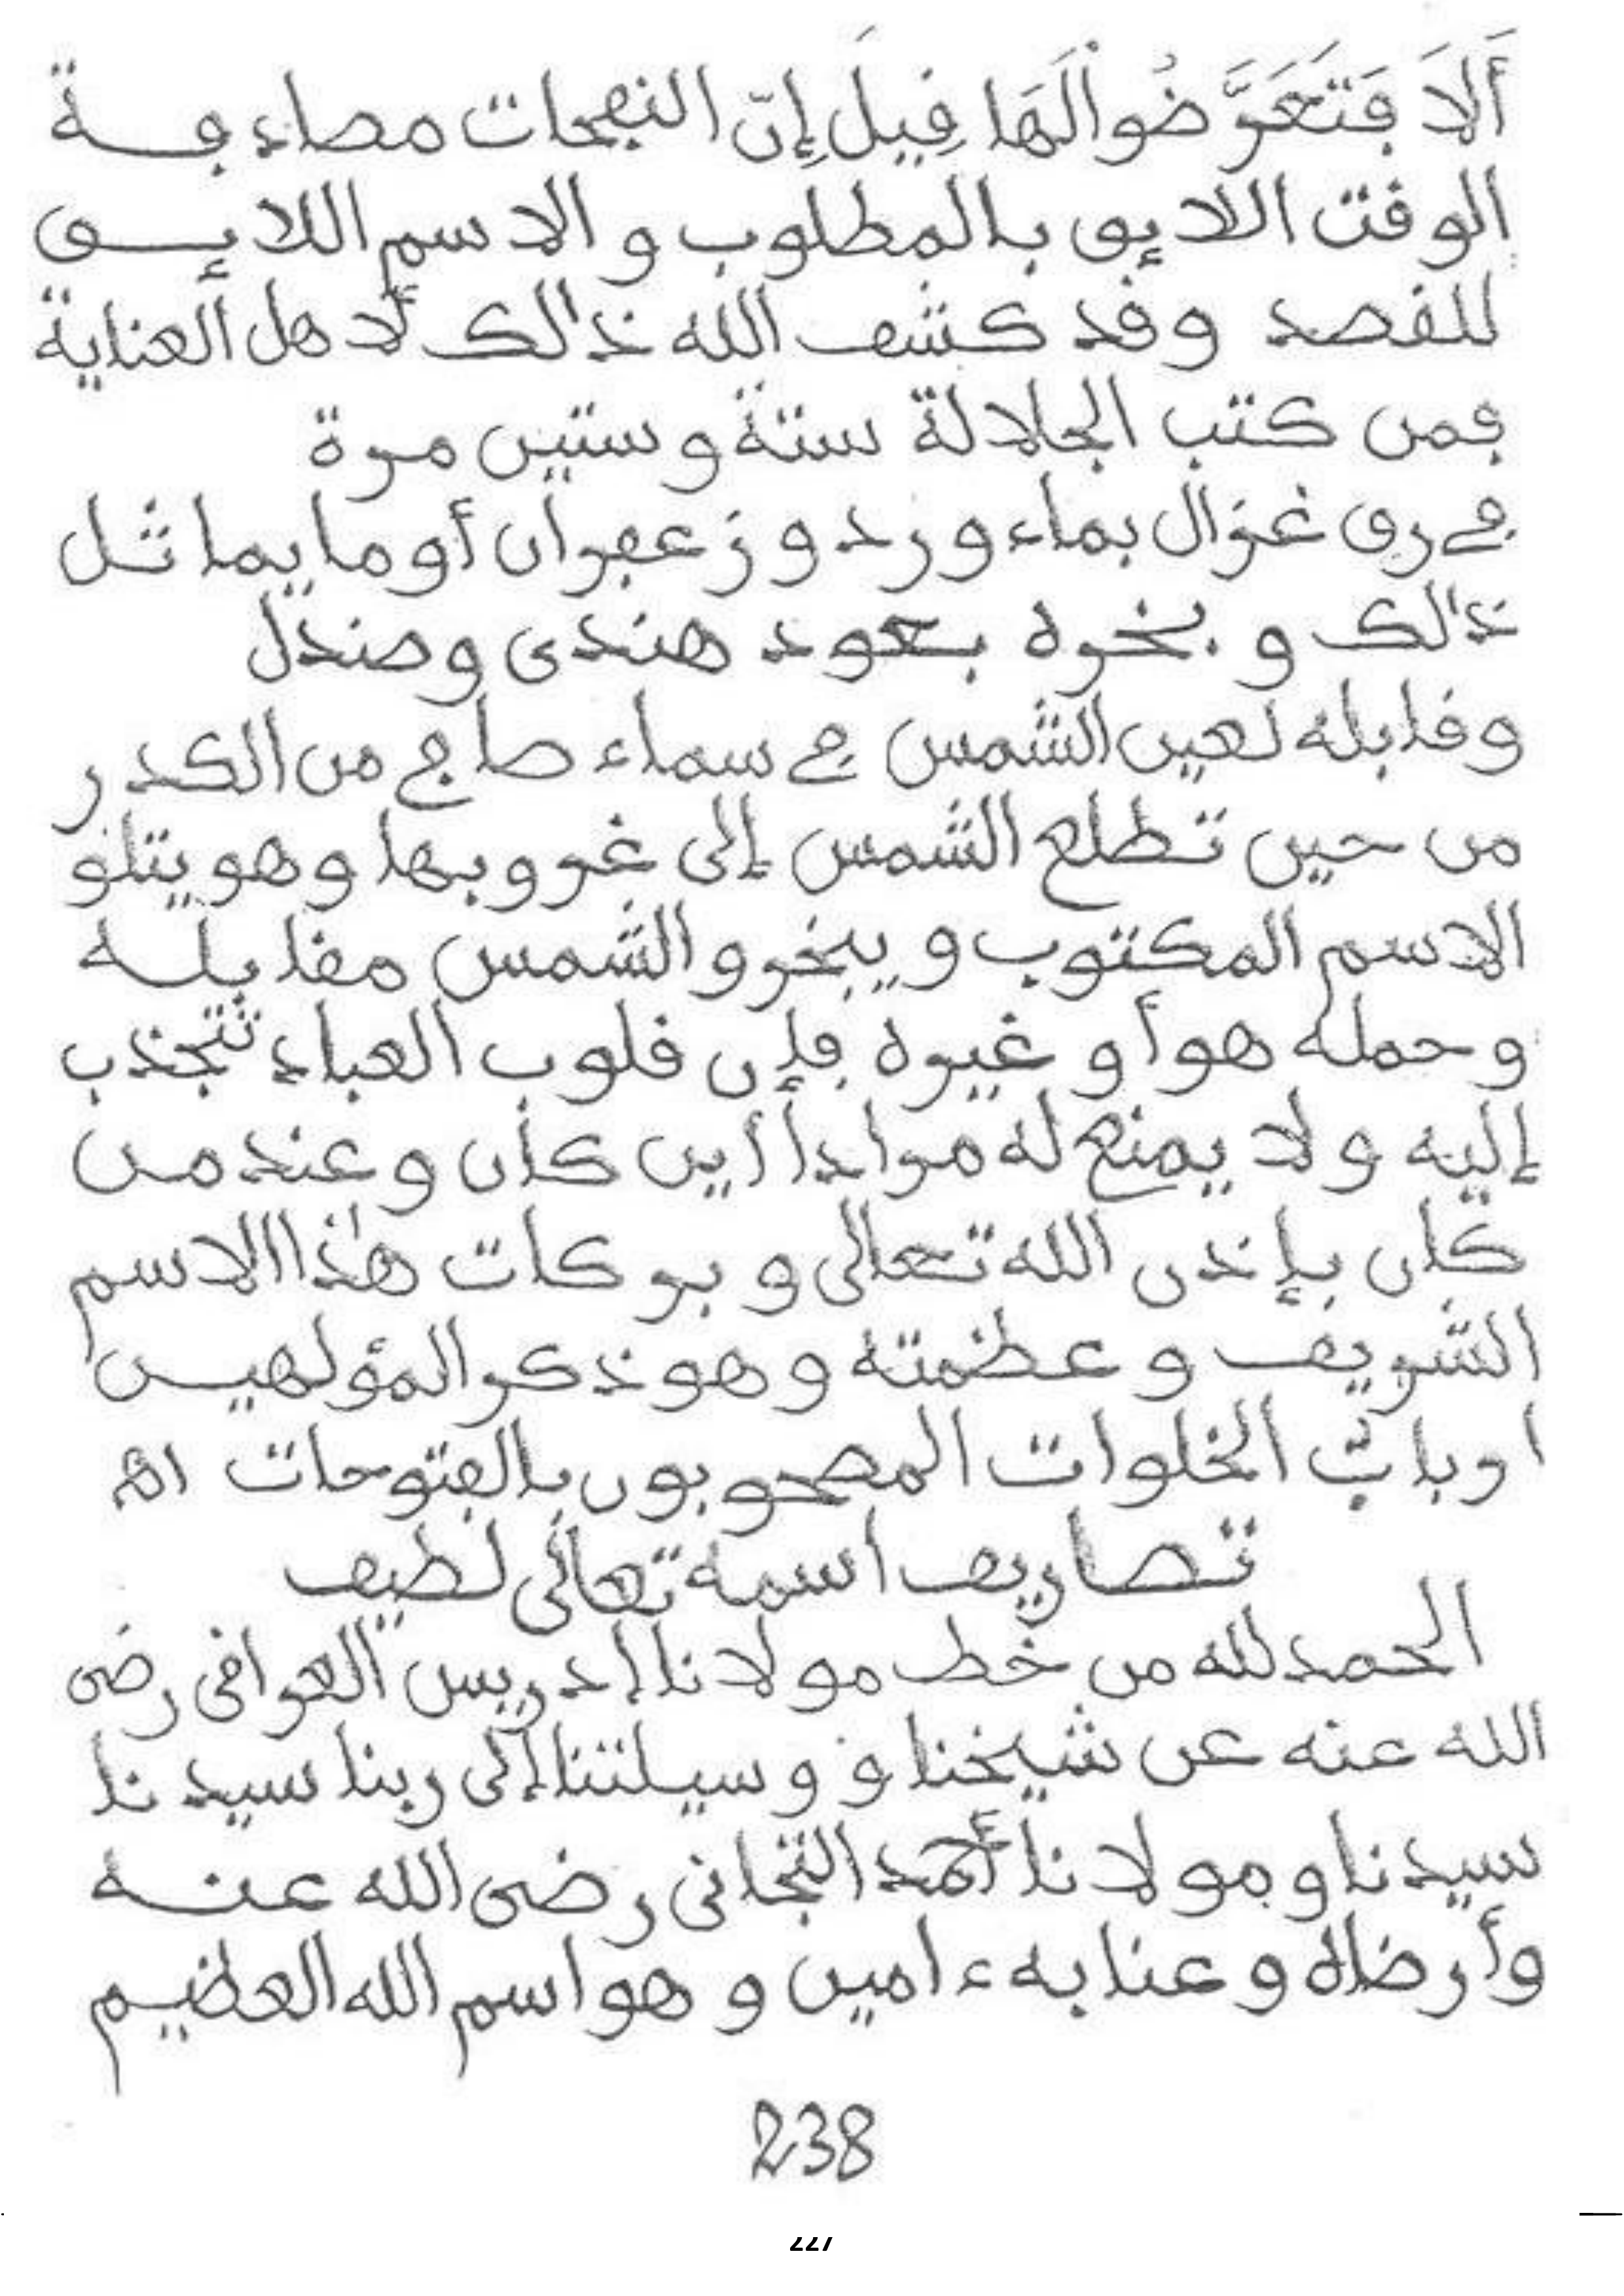 أَلَا فَتَعَرَّضُوا لَهَا فِيلَ إِنّ النفحات مصادفة
الوقت اللايق بالمطلوب والاسم اللايق
للقصد وقد كشف الله ذالك لأهل العناية
فمن كتب الجلالة ستة وستين مرة
في رق غزال بماء ورد وزعفران أو ما يماثل
ذالك وبخره بعود هندى وصندل
وقابله لعين الشمس في سماء صافي من الكدر
من حين تطلع الشمس إلى غروبها وهو يتلو
الاسم المكتوب ويبخر والشمس مقابله
وحمله هو أو غيره فإن قلوب العباد تنجذب
إليه ولا يمنع له مرادا أين كان وعند من
كان بإذن الله تعالى وبركات هذا الاسم
الشريف وعظمته وهو ذكر المؤلهين
ارباب الخلوات المصحوبون بالفتوحات اﻫ
تصاريف اسمه تعالى لطيف
الحمد لله من خط مولانا إدريس العراقى رضى
الله عنه عن شيخنا و وسيلتنا إلى ربنا سيدنا
سيدنا ومولانا أحمد التجانى رضى الله عنه
وأرضاه وعنا به ءامين وهو اسم الله العظيم
238
227